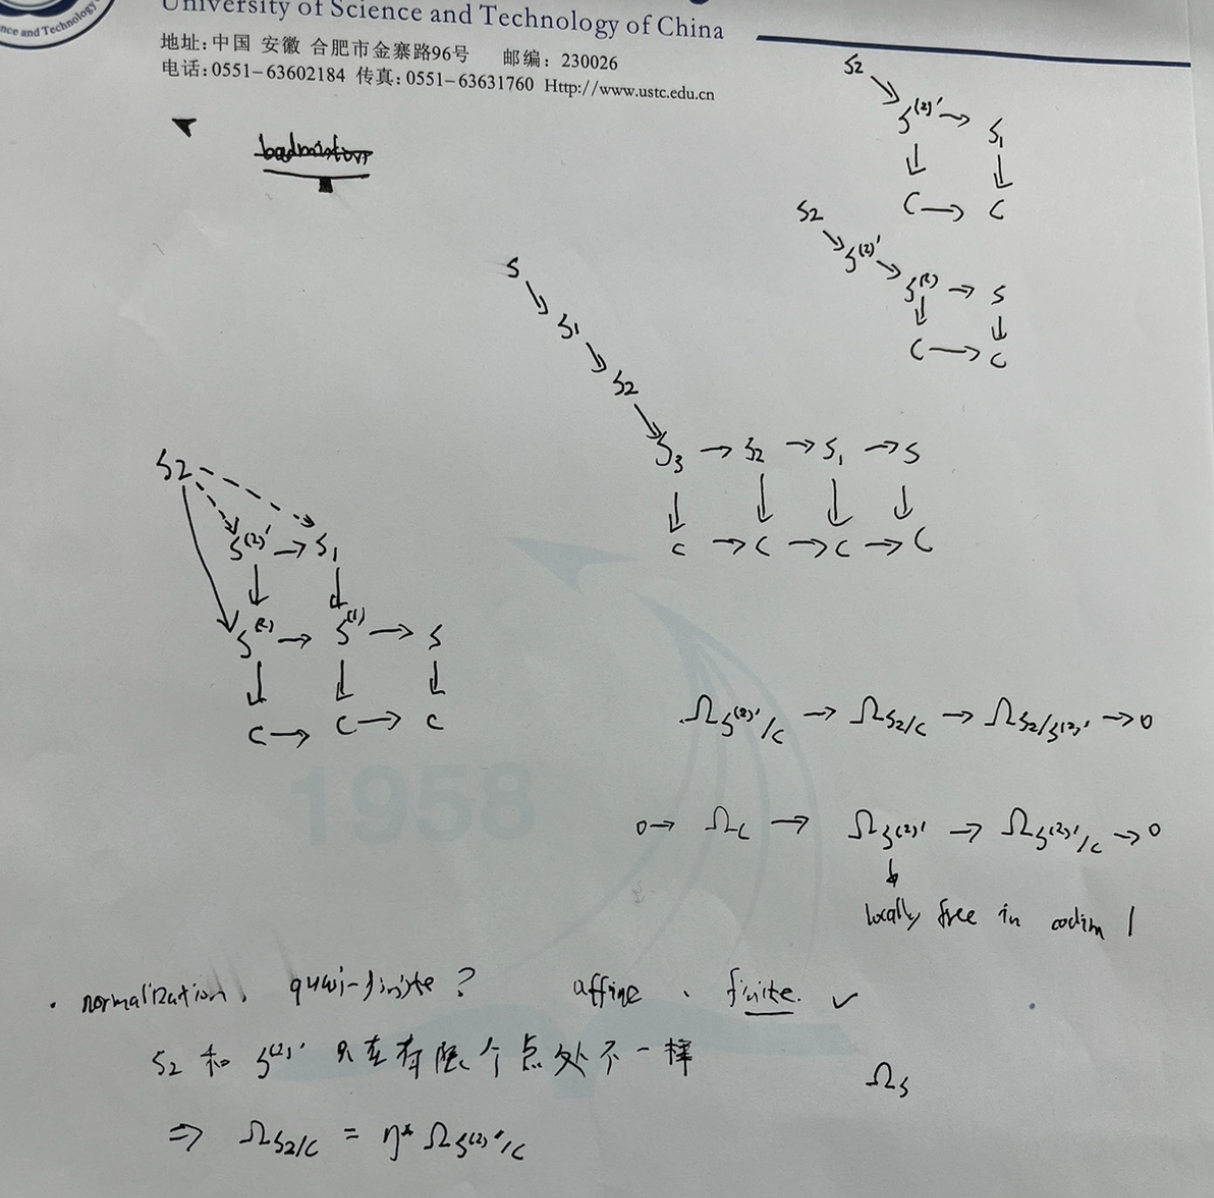 nce and Technology
University of Science and Technology of China
地址:中国 安徽 合肥市金寨路96号 邮编:230026
电话:0551-63602184 传真:0551-63631760 Http://www.ustc.edu.cn
badminton
S2
S^{(2)'} → S1
↓ ↓
C → C
S2
↘ S^{(2)'}
↘ S^{(2)} → S
↓ ↓
C → C
S
↘ S1
↘ S2
↘ S3 → S2 → S1 → S
↓ ↓ ↓ ↓
C → C → C → C
S2
S^{(2)'} → S1
↓ ↓
S^{(2)} → S^{(1)} → S
↓ ↓ ↓
C → C → C
Ω_{S^{(2)'}/C} → Ω_{S2/C} → Ω_{S2/S^{(2)'}} → 0
0 → Ω_C → Ω_{S^{(2)'}} → Ω_{S^{(2)'}/C} → 0
↓
locally free in codim 1
1958
· normalization, quasi-finite? affine、finite. ✓
S2 和 S^{(2)'} 只在有限个点处不一样
Ω_S
⇒ Ω_{S2/C} = η* Ω_{S^{(2)'}/C}